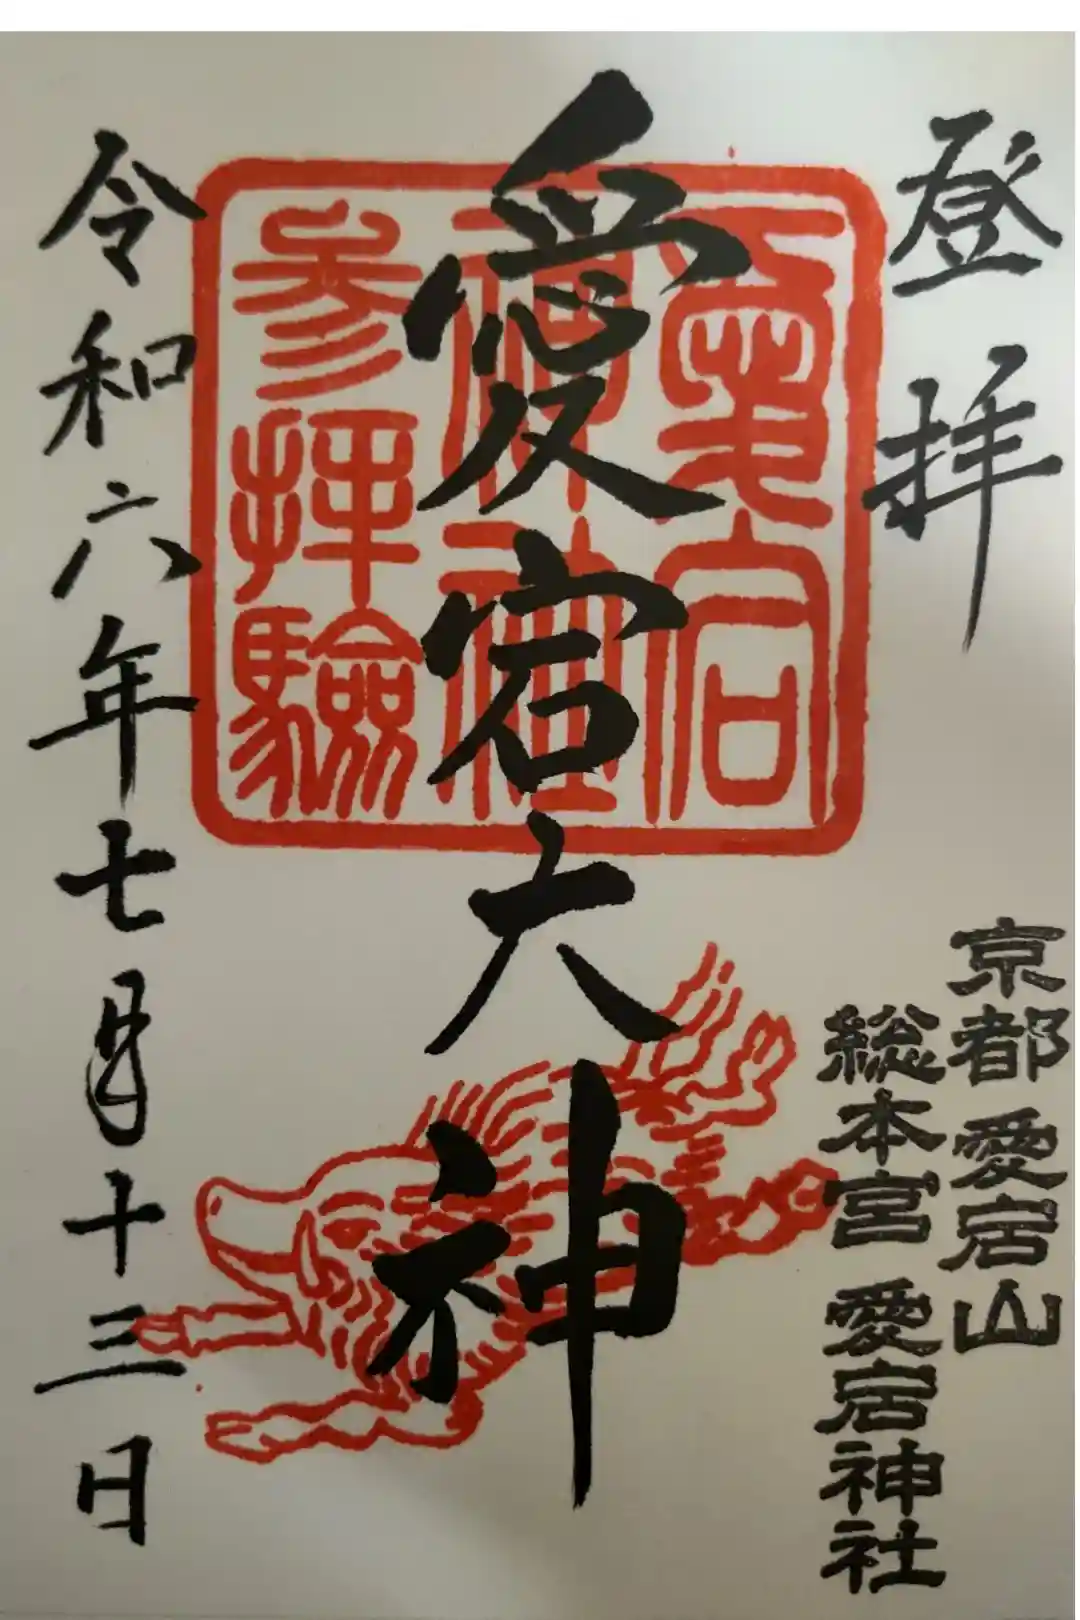 登拝
京都 愛宕山
総本宮 愛宕神社
愛宕大神
愛宕
神社
参拝驗
令和六年七月十三日